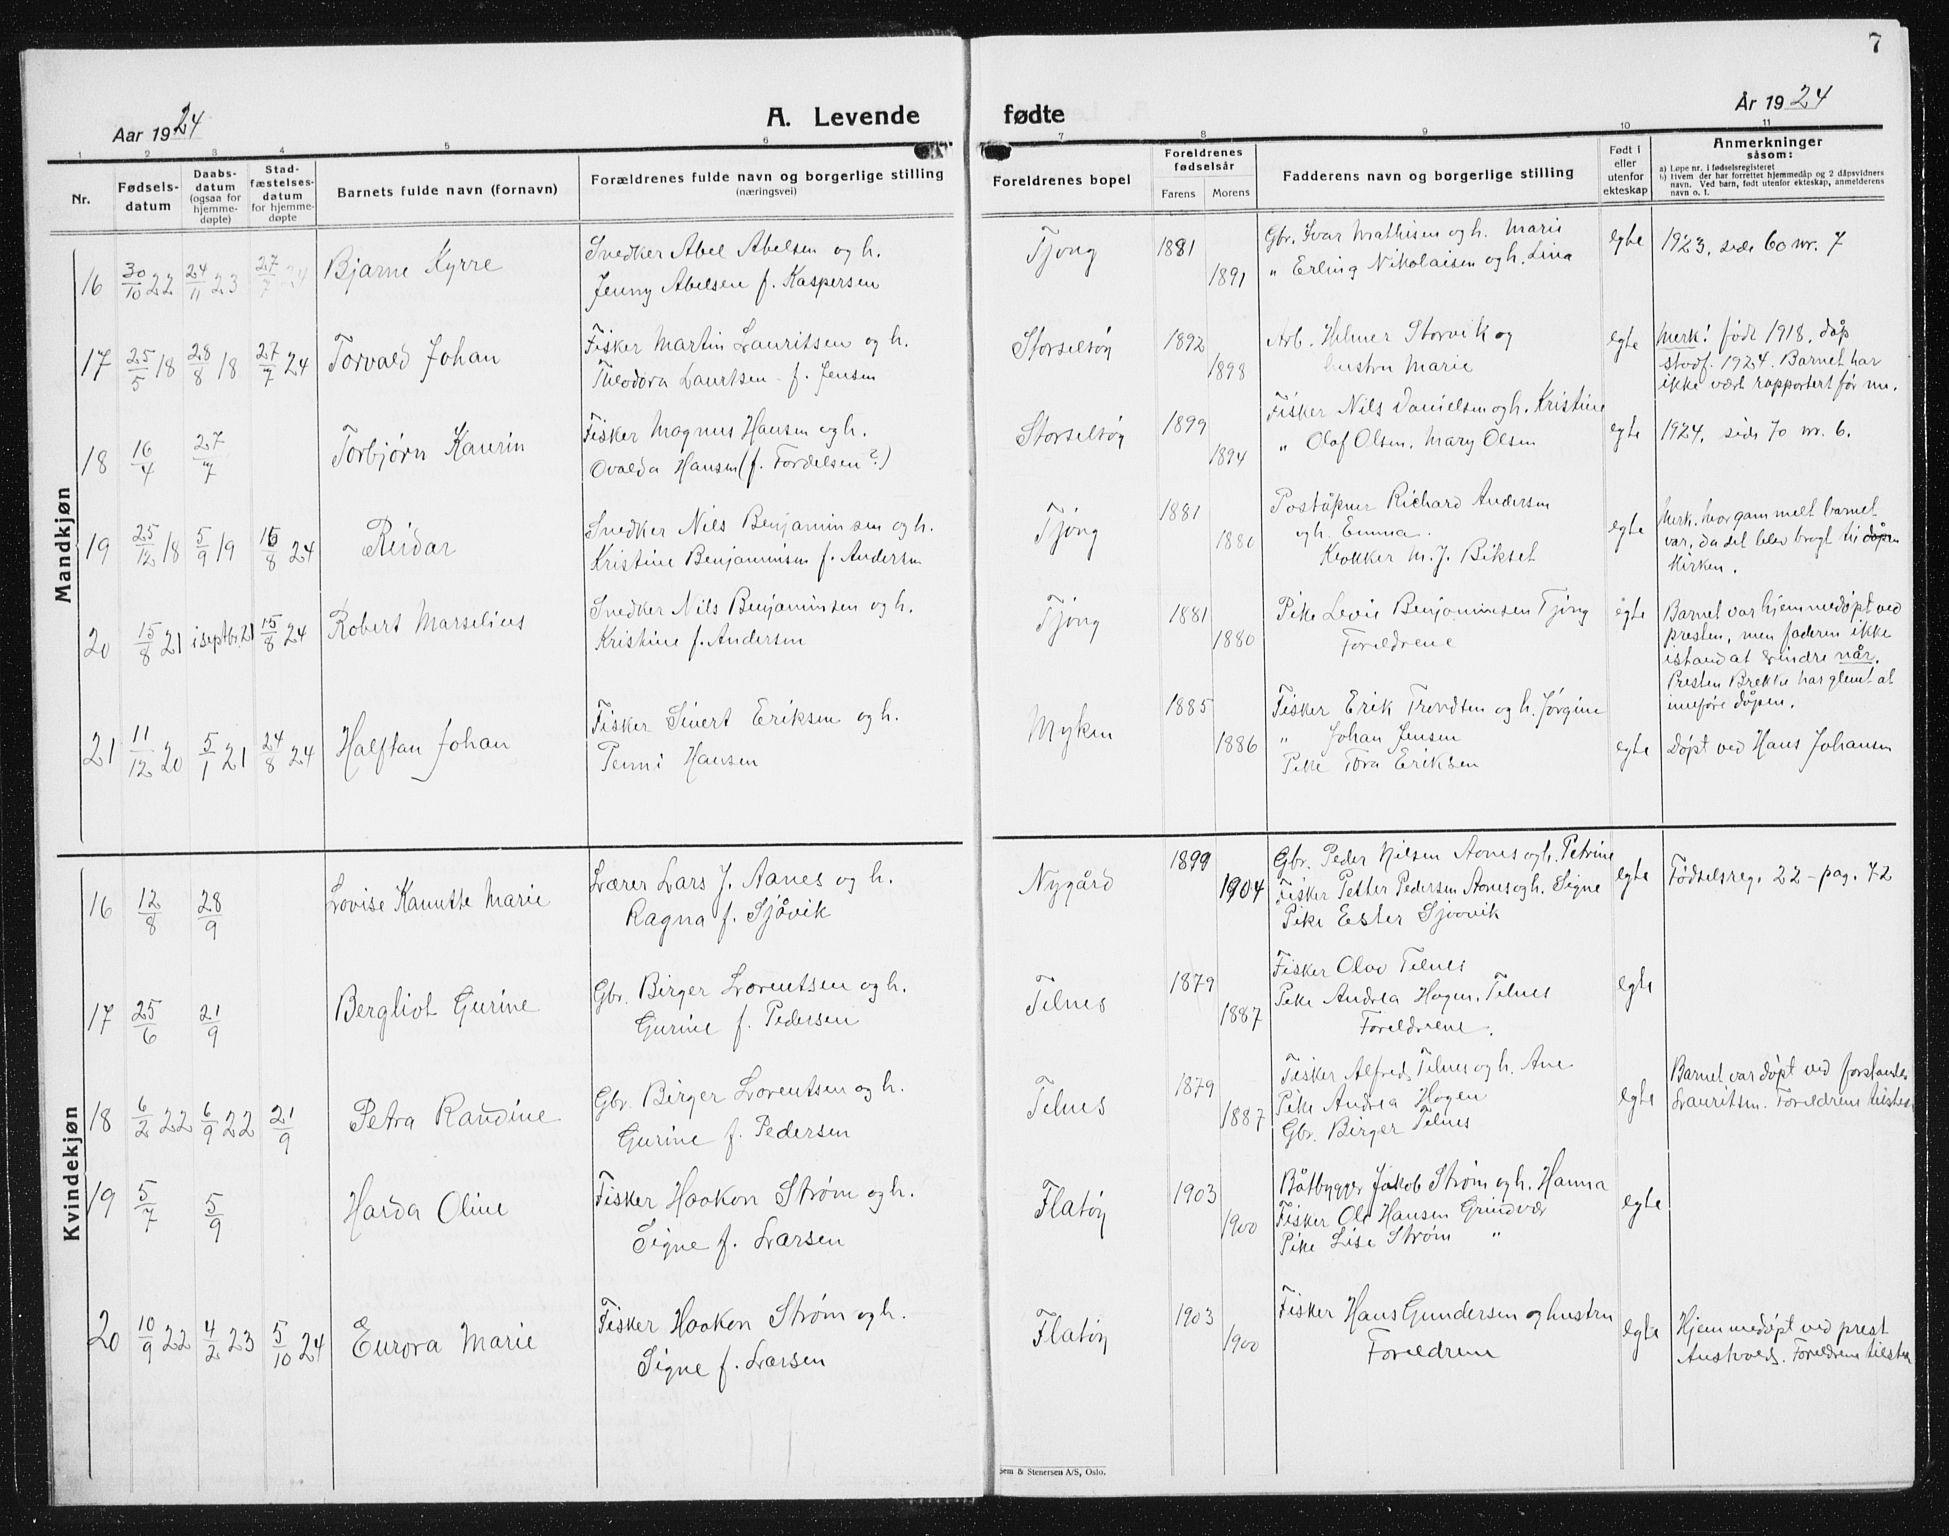 7
Aar 1924
A. Levende
fødte
År 1924
1 2 3 4 5 6 7 8 9 10 11
Nr.
Fødsels-
datum
Daabs-
datum
(ogsaa for
hjemme-
døpte)
Stad-
fæstelses-
datum
for hjemme-
døpte
Barnets fulde navn (fornavn)
Forældrenes fulde navn og borgerlige stilling
(næringsvei)
Foreldrenes bopel
Foreldrenes
fødselsår
Farens Morens
Fadderens navn og borgerlige stilling
Født i
eller
utenfor
ekteskap
Anmerkninger
såsom:
a) Løpe nr. i fødselsregisteret
b) Hvem der har forrettet hjemmedåp og 2 dåpsvidners
navn. Ved barn, født utenfor ekteskap, anmelderens
navn o. l.
Mandkjøn
16 30/10 22 24/11 23 27/7 24 Bjarne Kyrre
Snedker Abel Abelsen og h.
Jenny Abelsen f. Kaspersen
Tjong 1881 1891
Gbr. Ivar Mathisen og h. Marie
" Erling Nikolaisen og h. Lina
egte
1923, side 60 nr. 7
17 25/5 18 28/8 18 27/7 24 Torvald Johan
Fisker Martin Lauritsen og h.
Theodora Lauritsen f. Jensen
Storseløy 1892 1898
Arb. Hilmer Storvik og
hustru Marie
egte
Merk! født 1918, døp
stadf. 1924. Barnet har
ikke vært rapportert før nu.
18 16/4 27/7 Torbjørn Kaurin
Fisker Magnus Hansen og h.
Ovalda Hansen (f. Fordelsen?)
Storseløy 1899 1894
Fisker Nils Danielsen og h. Kristine
" Olaf Olsen, Mary Olsen
egte
1924, side 70 nr. 6.
19 25/12 18 5/9 19 15/8 24 Reidar
Snedker Nils Benjaminsen og h.
Kristine Benjaminsen f. Andersen
Tjong 1881 1880
Poståpner Richard Andersen
og h. Emma.
Klokker M. J. Bikset
egte
Merk, hvor gammelt barnet
var, da det blev bragt til dåpen
kirken.
20 15/8 21 i septbr. 21 15/8 24 Robert Marselius
Snedker Nils Benjaminsen og h.
Kristine f. Andersen
Tjong 1881 1880
Pike Levie Benjaminsen Tjong
Foreldrene
egte
Barnet var hjemmedøpt ved
presten, men faderen ikke
istand at erindre når.
Presten Brekke har glemt at
innføre dåpen.
21 11/12 20 5/1 21 24/8 24 Halftan Johan
Fisker Sivert Eriksen og h.
Penni Hansen
Myken 1885 1886
Fisker Erik Trondsen og h. Jørgine
" Johan Jensen
Pike Tora Eriksen
egte
Døpt ved Hans Johansen
Kvindekjøn
16 12/8 28/9 Lovise Kanutte Marie
Lærer Lars J. Aanes og h.
Ragna f. Sjåvik
Nygård 1899 1904
Gbr. Peder Nilsen Aanes og h. Petrine
Fisker Petter Pedersen Aanes og h. Signe
Pike Ester Sjåvik
egte
Fødselsreg. 22 - pag. 72
17 25/6 21/9 Bergliot Gurine
Gbr. Birger Lorentsen og h.
Gurine f. Pedersen
Telnes 1879 1887
Fisker Olav Telnes
Pike Andrea Hagen, Telnes
Foreldrene.
egte
18 6/2 22 6/9 22 21/9 Petra Randine
Gbr. Birger Lorentsen og h.
Gurine f. Pedersen
Telnes 1879 1887
Fisker Alfred Telnes og h. Ane
Pike Andrea Hagen
Gbr. Birger Telnes
egte
Barnet var døpt ved forstander
Lauritsen. Foreldrene tilstede
19 5/7 5/9 Harda Oline
Fisker Haakon Strøm og h.
Signe f. Larsen
Flatøy 1903 1900
Båtbygger Jakob Strøm og h. Hanna
Fisker Ole Hansen Grindvær
Pike Lise Strøm "
egte
20 10/9 22 4/2 23 5/10 24 Eurora Marie
Fisker Haakon Strøm og h.
Signe f. Larsen
Flatøy 1903 1900
Fisker Hans Gundersen og hustru
Foreldrene
egte
Hjemmedøpt ved prest
Foreldrene tilstede
Sem & Stenersen A/S, Oslo.